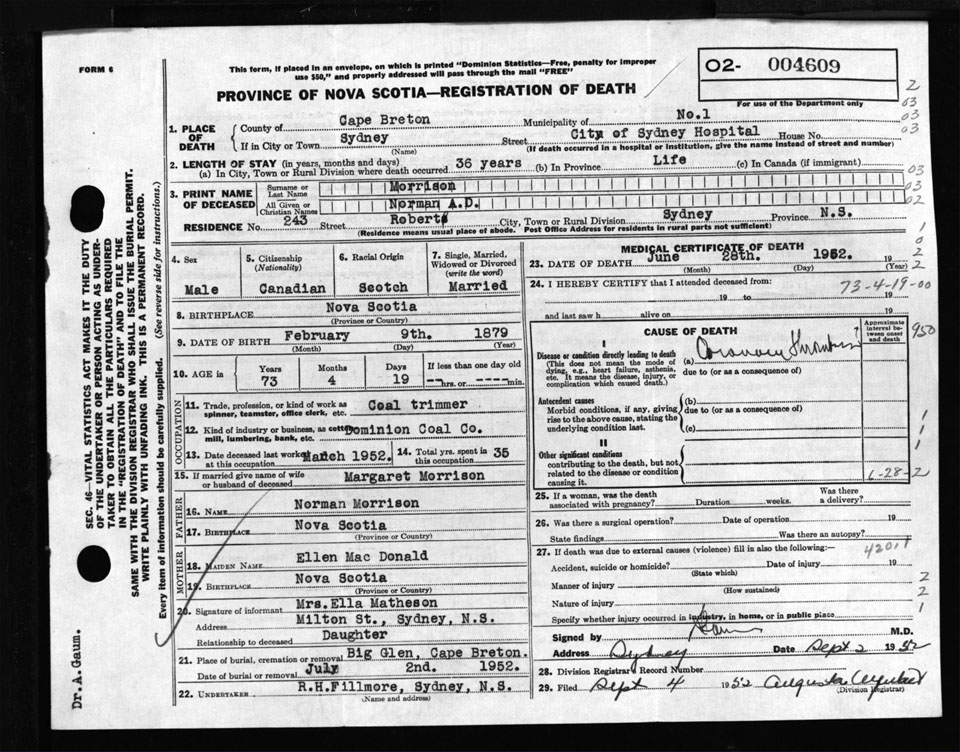 FORM 6
This form, if placed in an envelope, on which is printed "Dominion Statistics—Free, penalty for improper
use $50," and properly addressed will pass through the mail "FREE"
PROVINCE OF NOVA SCOTIA—REGISTRATION OF DEATH
02- 004609
For use of the Department only
2
03
03
03
1. PLACE OF DEATH
County of Cape Breton Municipality of No.1
If in City or Town Sydney Street City of Sydney Hospital House No.
(Name) (If death occurred in a hospital or institution, give the name instead of street and number)
2. LENGTH OF STAY (in years, months and days)
(a) In City, Town or Rural Division where death occurred 36 years (b) In Province Life (c) In Canada (if immigrant)
03
3. PRINT NAME OF DECEASED
Surname or Last Name Morrison
03
All Given or Christian Names Norman A.D.
02
RESIDENCE No. 243 Street Robert City, Town or Rural Division Sydney Province N.S.
(Residence means usual place of abode. Post Office Address for residents in rural parts not sufficient)
4. Sex
Male
5. Citizenship
(Nationality)
Canadian
6. Racial Origin
Scotch
7. Single, Married,
Widowed or Divorced
(write the word)
Married
8. BIRTHPLACE Nova Scotia
(Province or Country)
9. DATE OF BIRTH February 9th. 1879
(Month) (Day) (Year)
10. AGE in
Years Months Days If less than one day old
73 4 19 --- hrs. or --- min.
OCCUPATION
11. Trade, profession, or kind of work as
spinner, teamster, office clerk, etc. Coal trimmer
12. Kind of industry or business, as cotton
mill, lumbering, bank, etc. Dominion Coal Co.
13. Date deceased last worked
at this occupation March 1952.
14. Total yrs. spent in
this occupation 35
15. If married give name of wife
or husband of deceased Margaret Morrison
FATHER
16. NAME Norman Morrison
17. BIRTHPLACE Nova Scotia
(Province or Country)
MOTHER
18. MAIDEN NAME Ellen Mac Donald
19. BIRTHPLACE Nova Scotia
(Province or Country)
20. Signature of informant Mrs. Ella Matheson
Address Milton St., Sydney, N.S.
Relationship to deceased Daughter
21. Place of burial, cremation or removal Big Glen, Cape Breton.
Date of burial or removal July 2nd. 1952.
22. UNDERTAKER R.H.Fillmore, Sydney, N.S.
(Name and address)
MEDICAL CERTIFICATE OF DEATH
23. DATE OF DEATH June 28th. 1952. 19
(Month) (Day) (Year)
1
0
2
2
24. I HEREBY CERTIFY that I attended deceased from:
73-4-19-00
19 to 19
and last saw h alive on 19
CAUSE OF DEATH
Approximate interval between onset and death
950
I
Disease or condition directly leading to death
(This does not mean the mode of
dying, e.g., heart failure, asthenia,
etc. It means the disease, injury, or
complication which caused death.)
(a) Coronary Thrombosis
due to (or as a consequence of)
Antecedent causes
Morbid conditions, if any, giving
rise to the above cause, stating the
underlying condition last.
(b)
due to (or as a consequence of)
(c)
1
1
1
II
Other significant conditions
contributing to the death, but not
related to the disease or condition
causing it.
6-28-2
25. If a woman, was the death
associated with pregnancy? Duration weeks. Was there
a delivery?
26. Was there a surgical operation? Date of operation 19
State findings Was there an autopsy?
27. If death was due to external causes (violence) fill in also the following:—
4201 1
Accident, suicide or homicide? Date of injury 19
(State which)
Manner of injury
(How sustained)
2
Nature of injury
2
Specify whether injury occurred in industry, in home, or in public place
1
Signed by M.D.
Address Sydney Date Sept 2 1952
28. Division Registrar's Record Number
29. Filed Sept 4 1952 Augusta
(Division Registrar)
SEC. 46—VITAL STATISTICS ACT MAKES IT THE DUTY
OF THE UNDERTAKER OR PERSON ACTING AS UNDER-
TAKER TO OBTAIN ALL THE PARTICULARS REQUIRED
IN THE "REGISTRATION OF DEATH" AND TO FILE THE
SAME WITH THE DIVISION REGISTRAR WHO SHALL ISSUE THE BURIAL PERMIT.
WRITE PLAINLY WITH UNFADING INK. THIS IS A PERMANENT RECORD.
Every item of information should be carefully supplied. (See reverse side for instructions.)
Dr. A. Gaum.